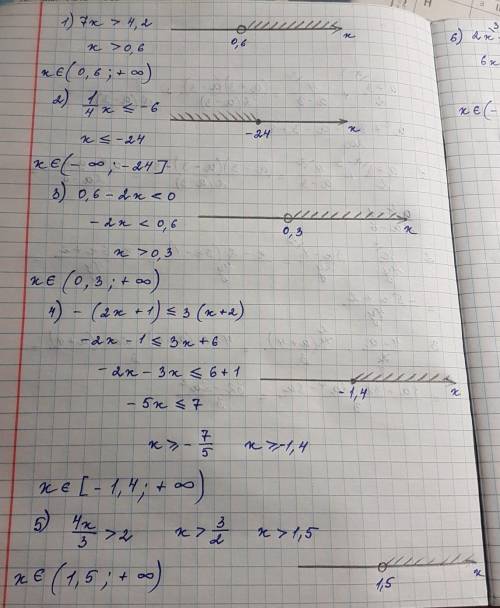 1) 7x > 4,2
x > 0,6
0,6 x
x∈(0,6; +∞)
2) 1/4 x ≤ -6
x ≤ -24
-24 x
x∈(-∞; -24]
3) 0,6 - 2x < 0
-2x < 0,6
x > 0,3
0,3 x
x∈(0,3; +∞)
4) -(2x+1) ≤ 3(x+2)
-2x - 1 ≤ 3x + 6
-2x - 3x ≤ 6 + 1
-5x ≤ 7
-1,4 x
x ≥ -7/5 x ≥ -1,4
x∈[-1,4; +∞)
5) 4x/3 > 2 x > 3/2 x > 1,5
x∈(1,5; +∞)
1,5 x
6)
6x
x∈(-